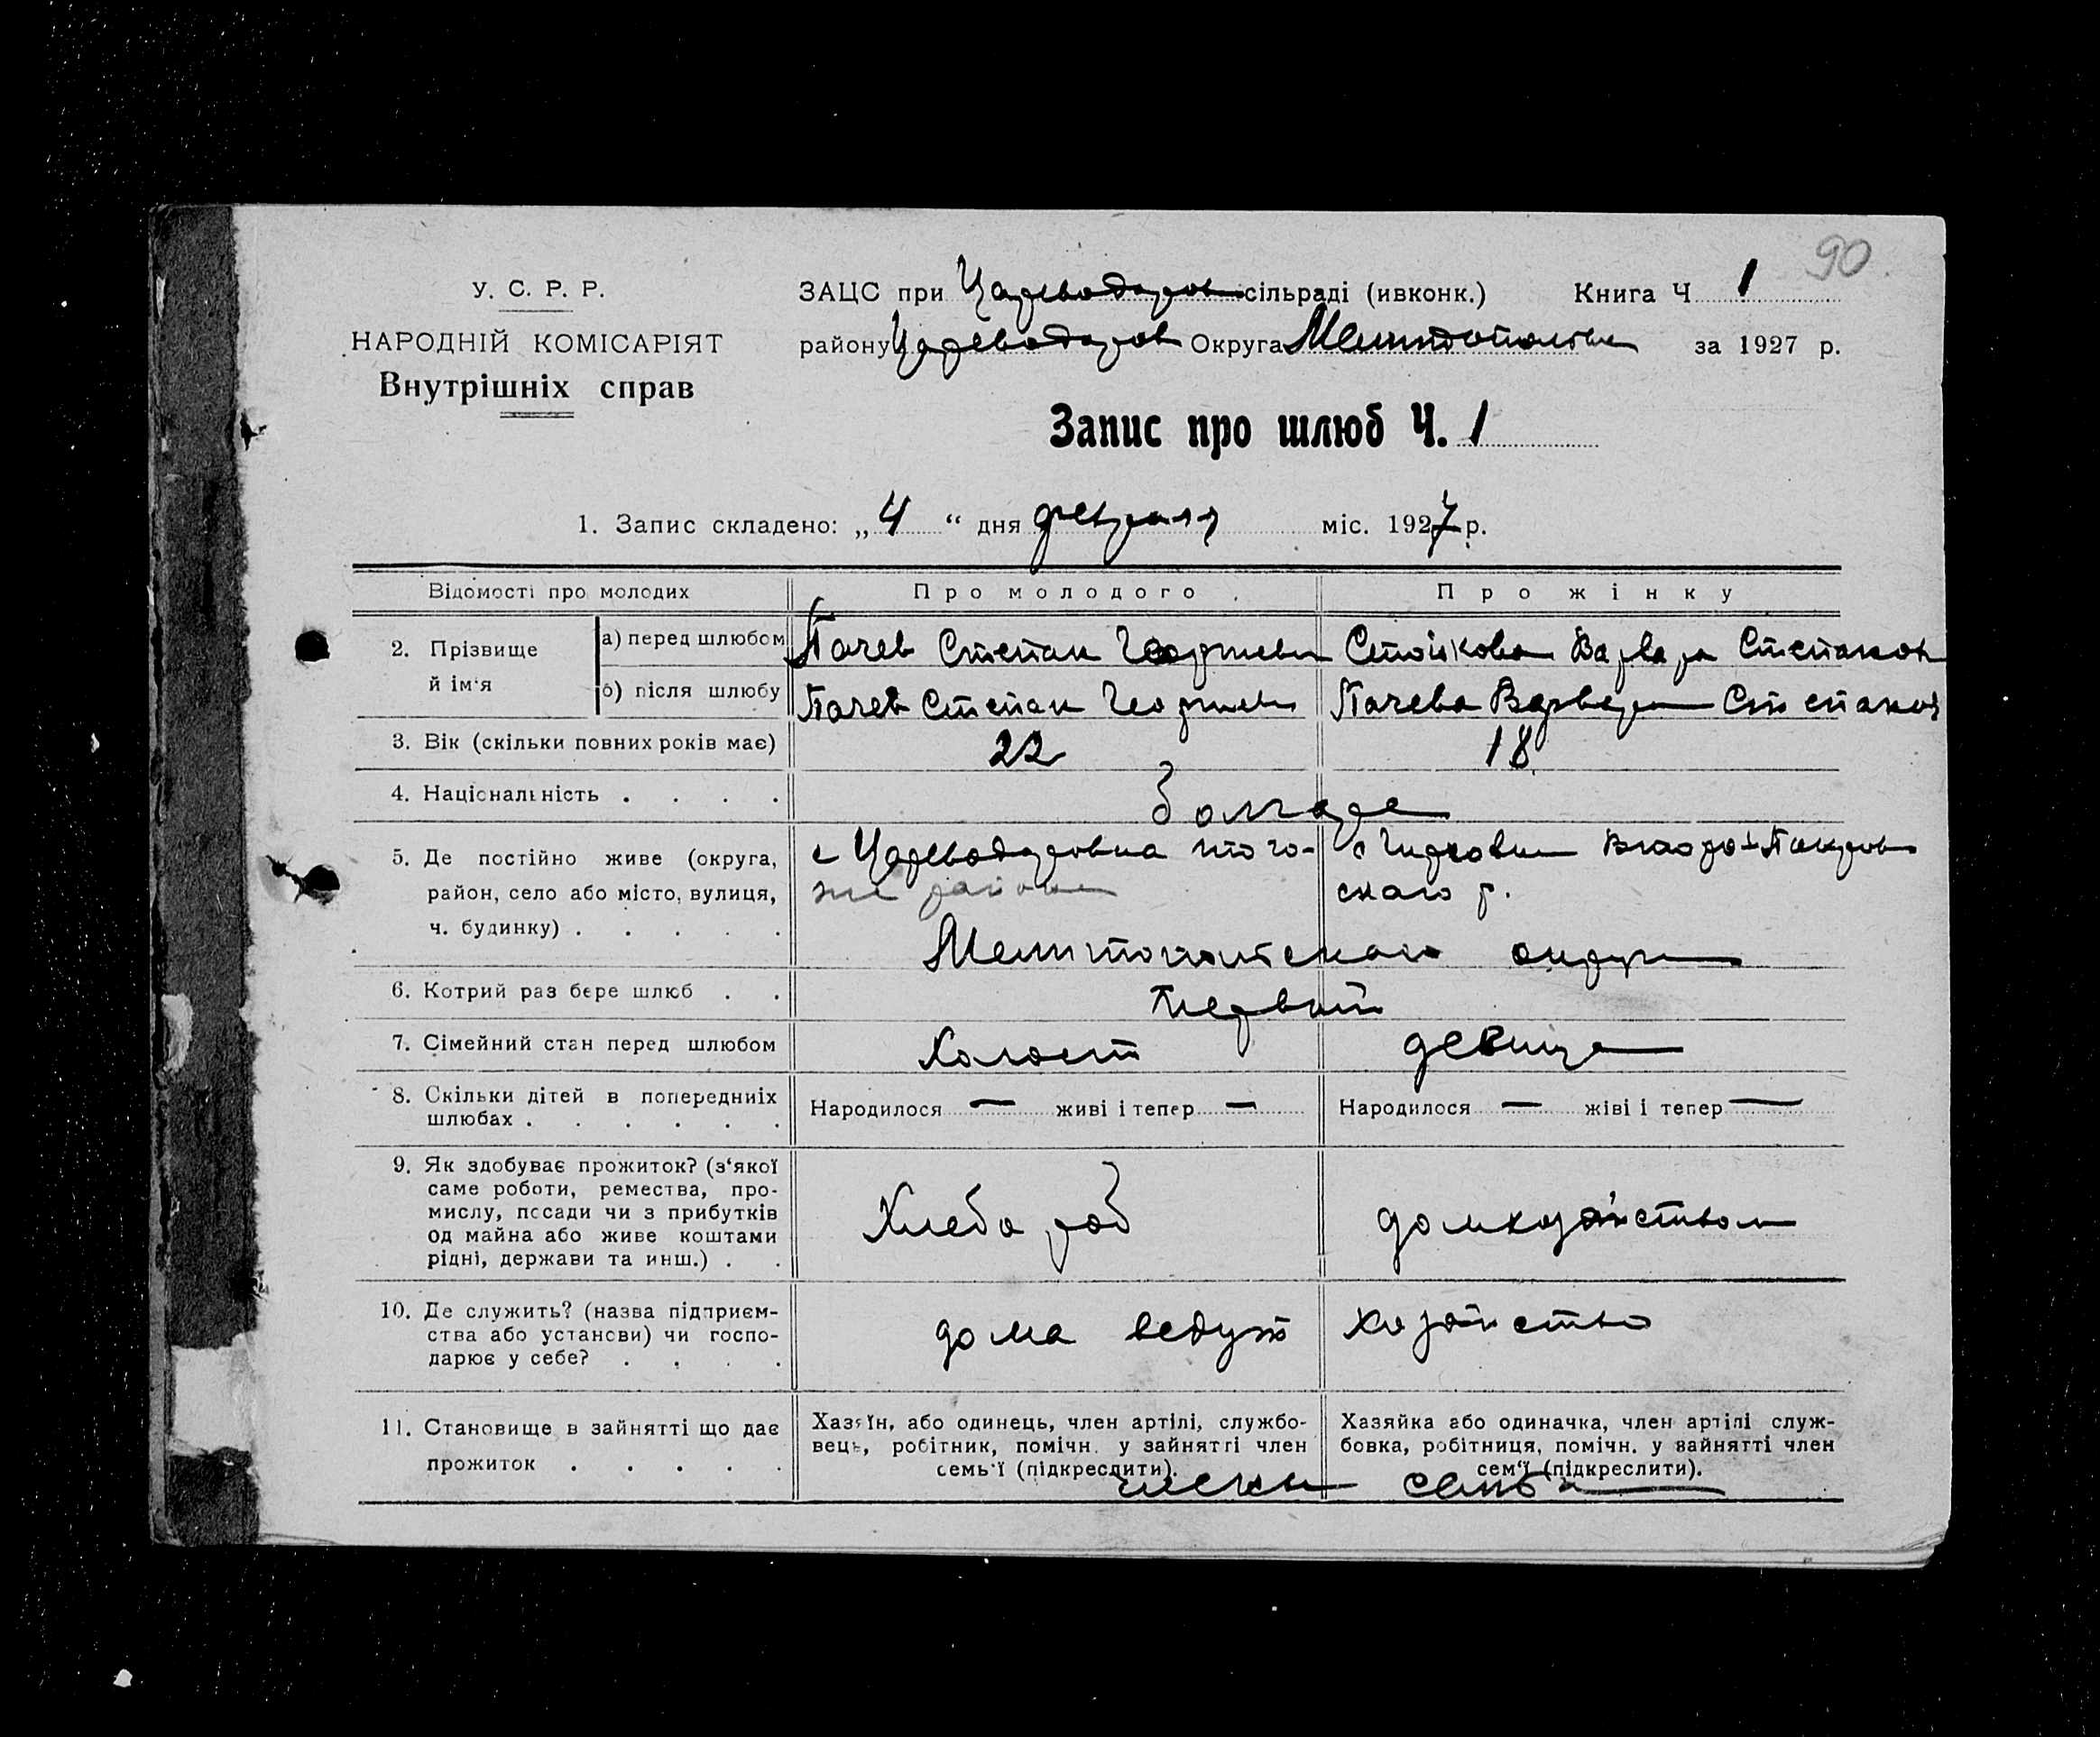 90
У. С. Р. Р.
НАРОДНІЙ КОМІСАРІЯТ
Внутрішніх справ
ЗАЦС при Цареводаров сільраді (ивконк.) Книга Ч 1
району Цареводаров Округа за 1927 р.
Запис про шлюб Ч. 1
1. Запис складено: „4“ дня февраля міс. 1927 р.
Відомості про молодих Про молодого Про жінку
2. Прізвище й ім‘я
а) перед шлюбом Пачев Степан Георгиеви Стойкова Варвара Степанов
б) після шлюбу Пачев Степан Георгиев Пачева Варвара Степанов
3. Вік (скільки повних років має) 22 18
4. Національність . . . . болгаре
5. Де постійно живе (округа, с Цареводаровка того- с
район, село або місто, вулиця, же района скаго р.
ч. будинку) . . . . . Мелитопольскаго округа
6. Котрий раз бере шлюб . . Первый
7. Сімейний стан перед шлюбом Холост девица
8. Скільки дітей в попередниіх Народилося — живі і тепер — Народилося — жіві і тепер —
шлюбах . . . . . .
9. Як здобуває прожиток? (з‘якої
саме роботи, ремества, про-
мислу, посади чи з прибутків Хлебороб домхозяйством
од майна або живе коштами
рідні, держави та инш.) . .
10. Де служить? (назва підприєм-
ства або установи) чи госпо- дома ведут хозяйство
дарює у себе? . . . .
11. Становище в зайнятті що дає
прожиток . . . . .
Хазяїн, або одинець, член артілі, службо-
вець, робітник, помічн. у зайнятті член
семь‘ї (підкреслити).
Хазяйка або одиначка, член артілі служ-
бовка, робітниця, помічн. у зайнятті член
сем‘ї (підкреслити).
члены семьи